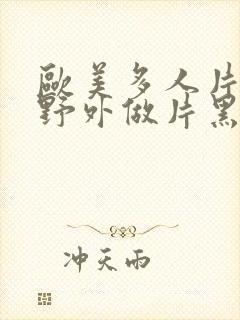 歐美多人片
野外做片黑
冲天雨